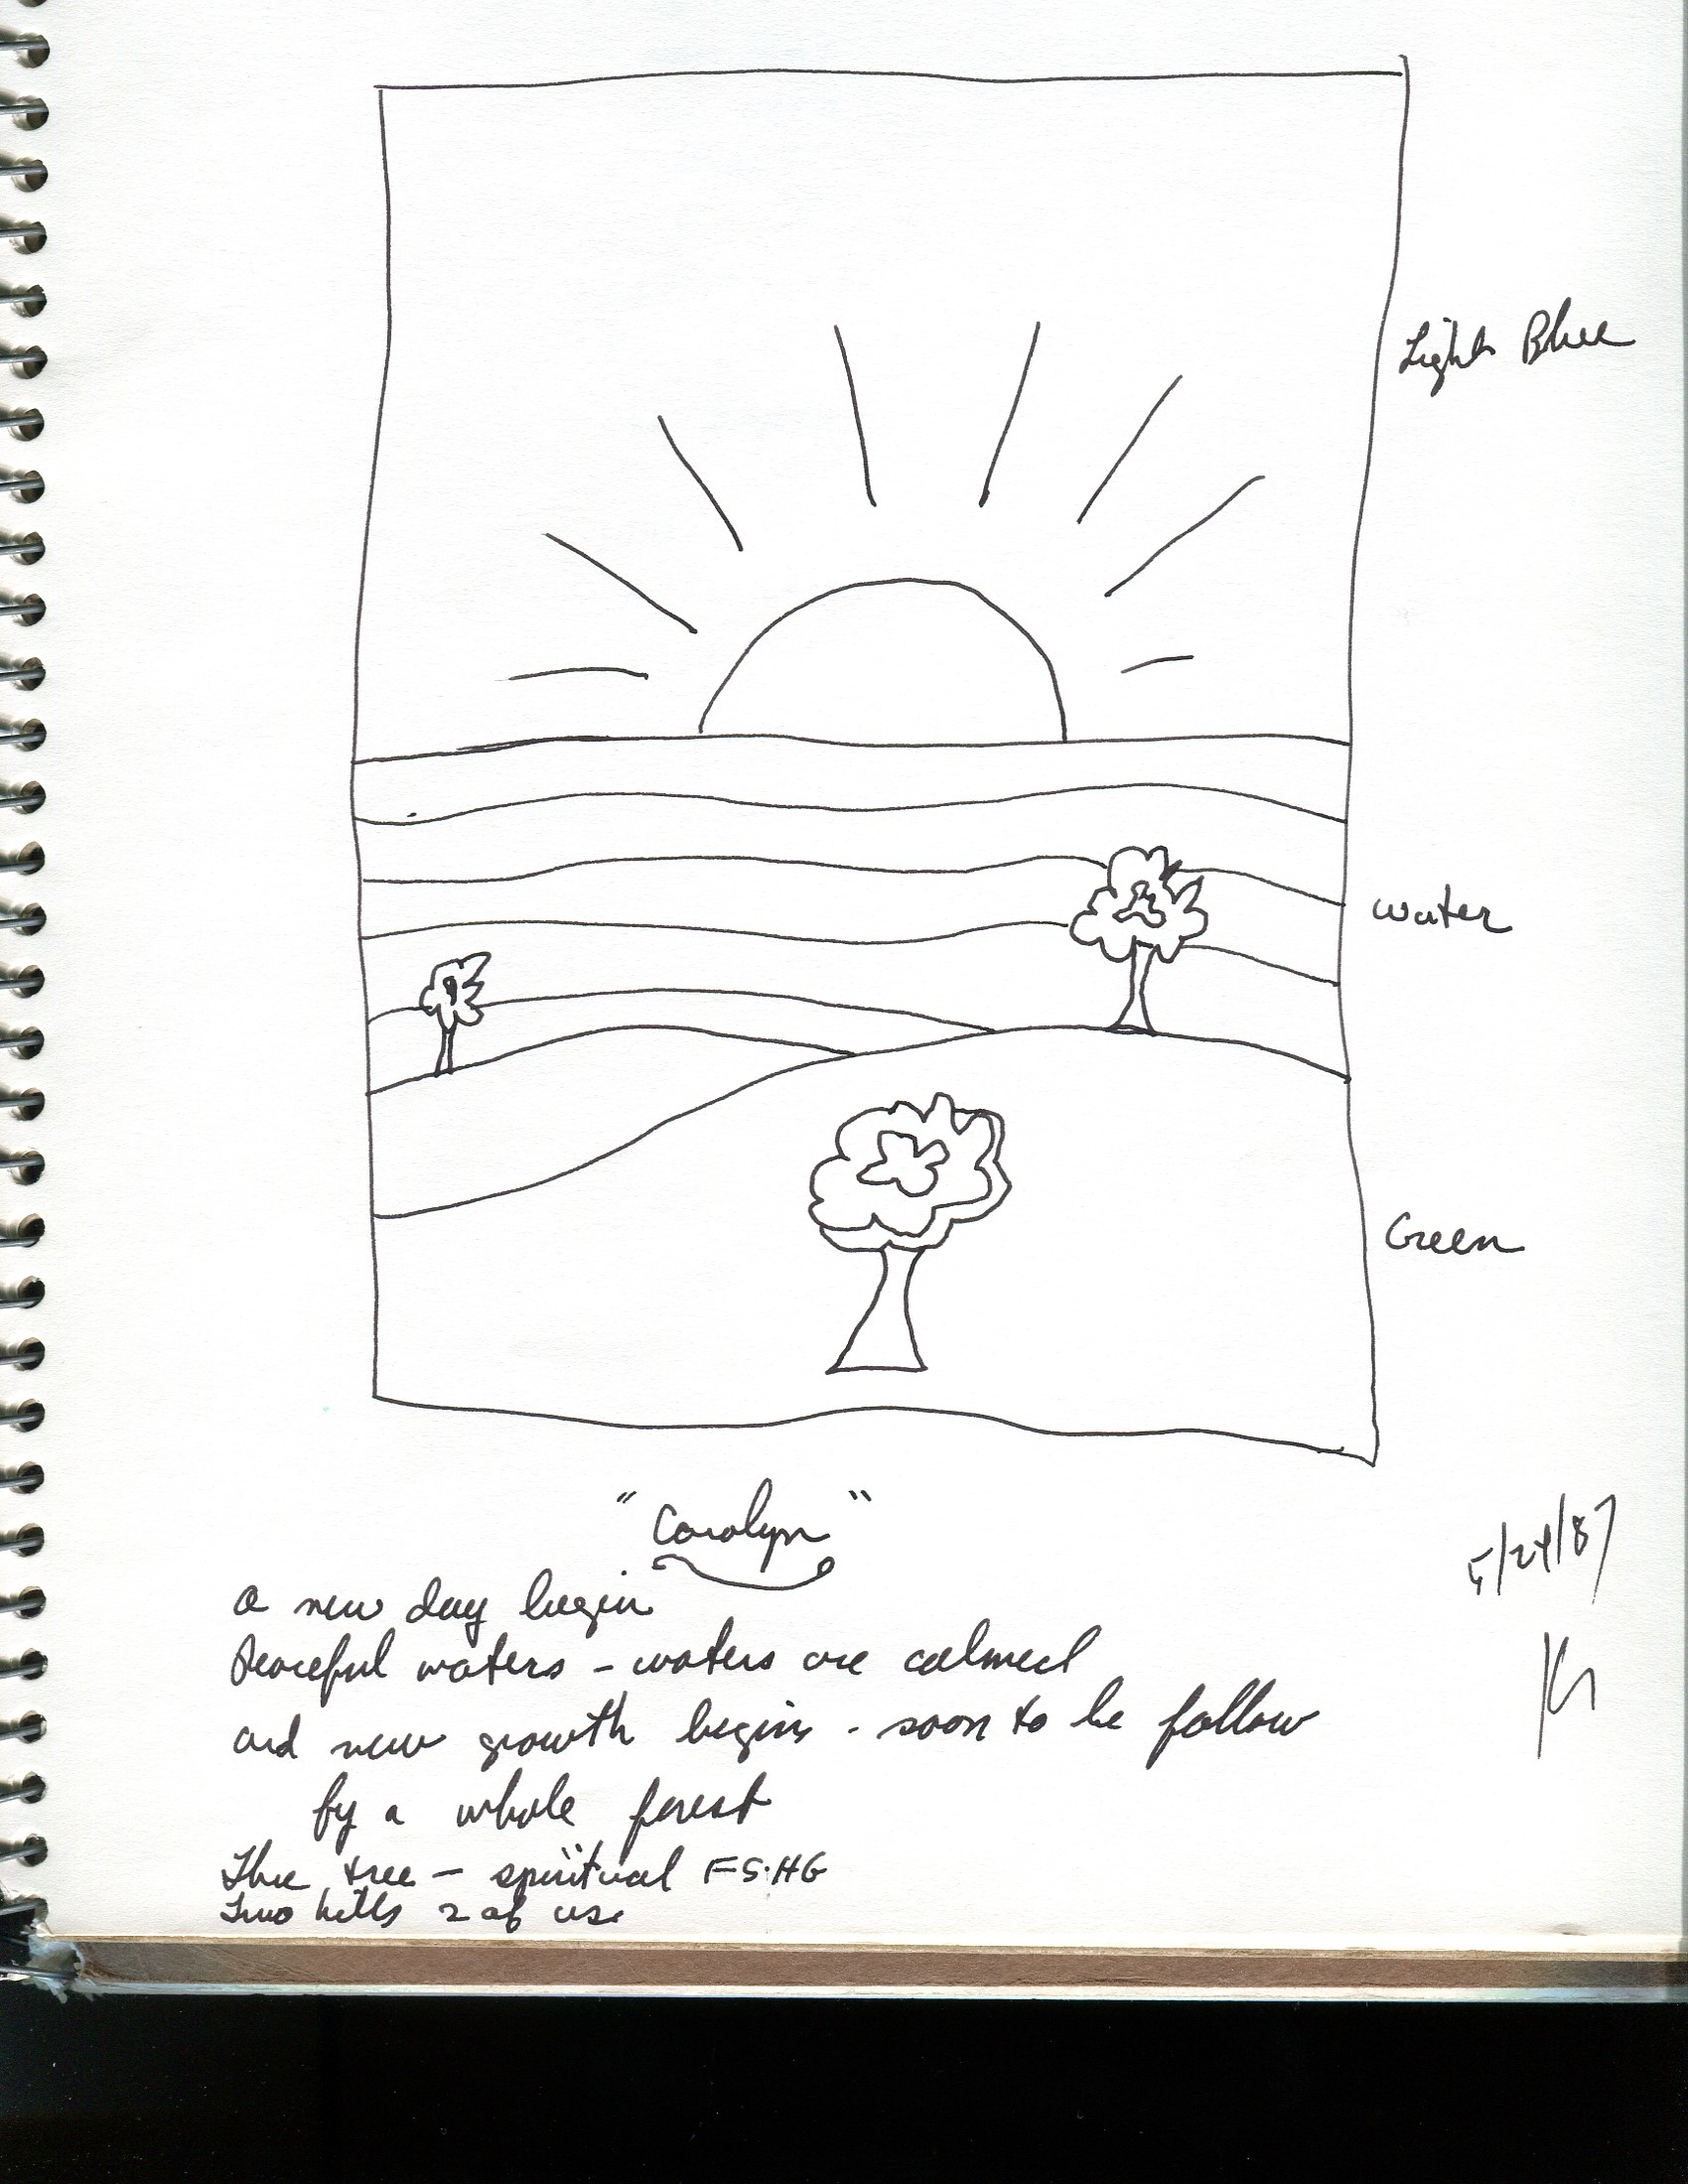 Light Blue
water
Green
"Carolyn"
5/24/87
a new day begin
Peaceful waters - waters are calmed
and new growth begins - soon to be follow
by a whole forest
Three tree - spiritual F.S.HG
Two hills 2 of us.